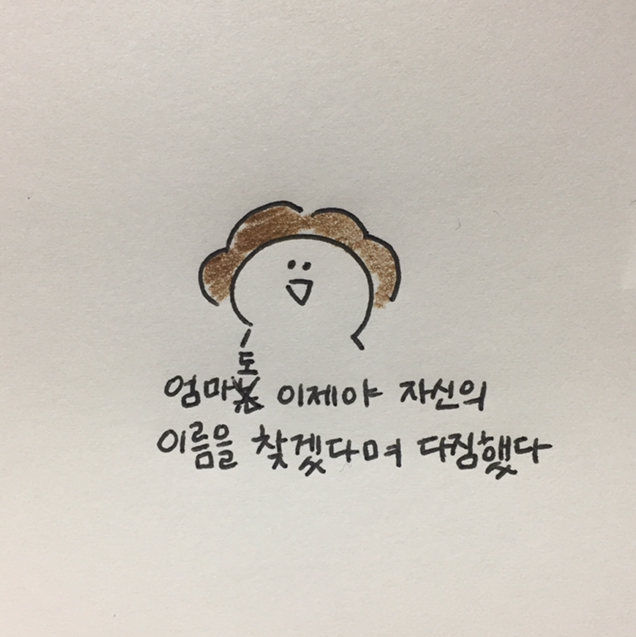 엄마도 이제야 자신의
이름을 찾겠다며 다짐했다